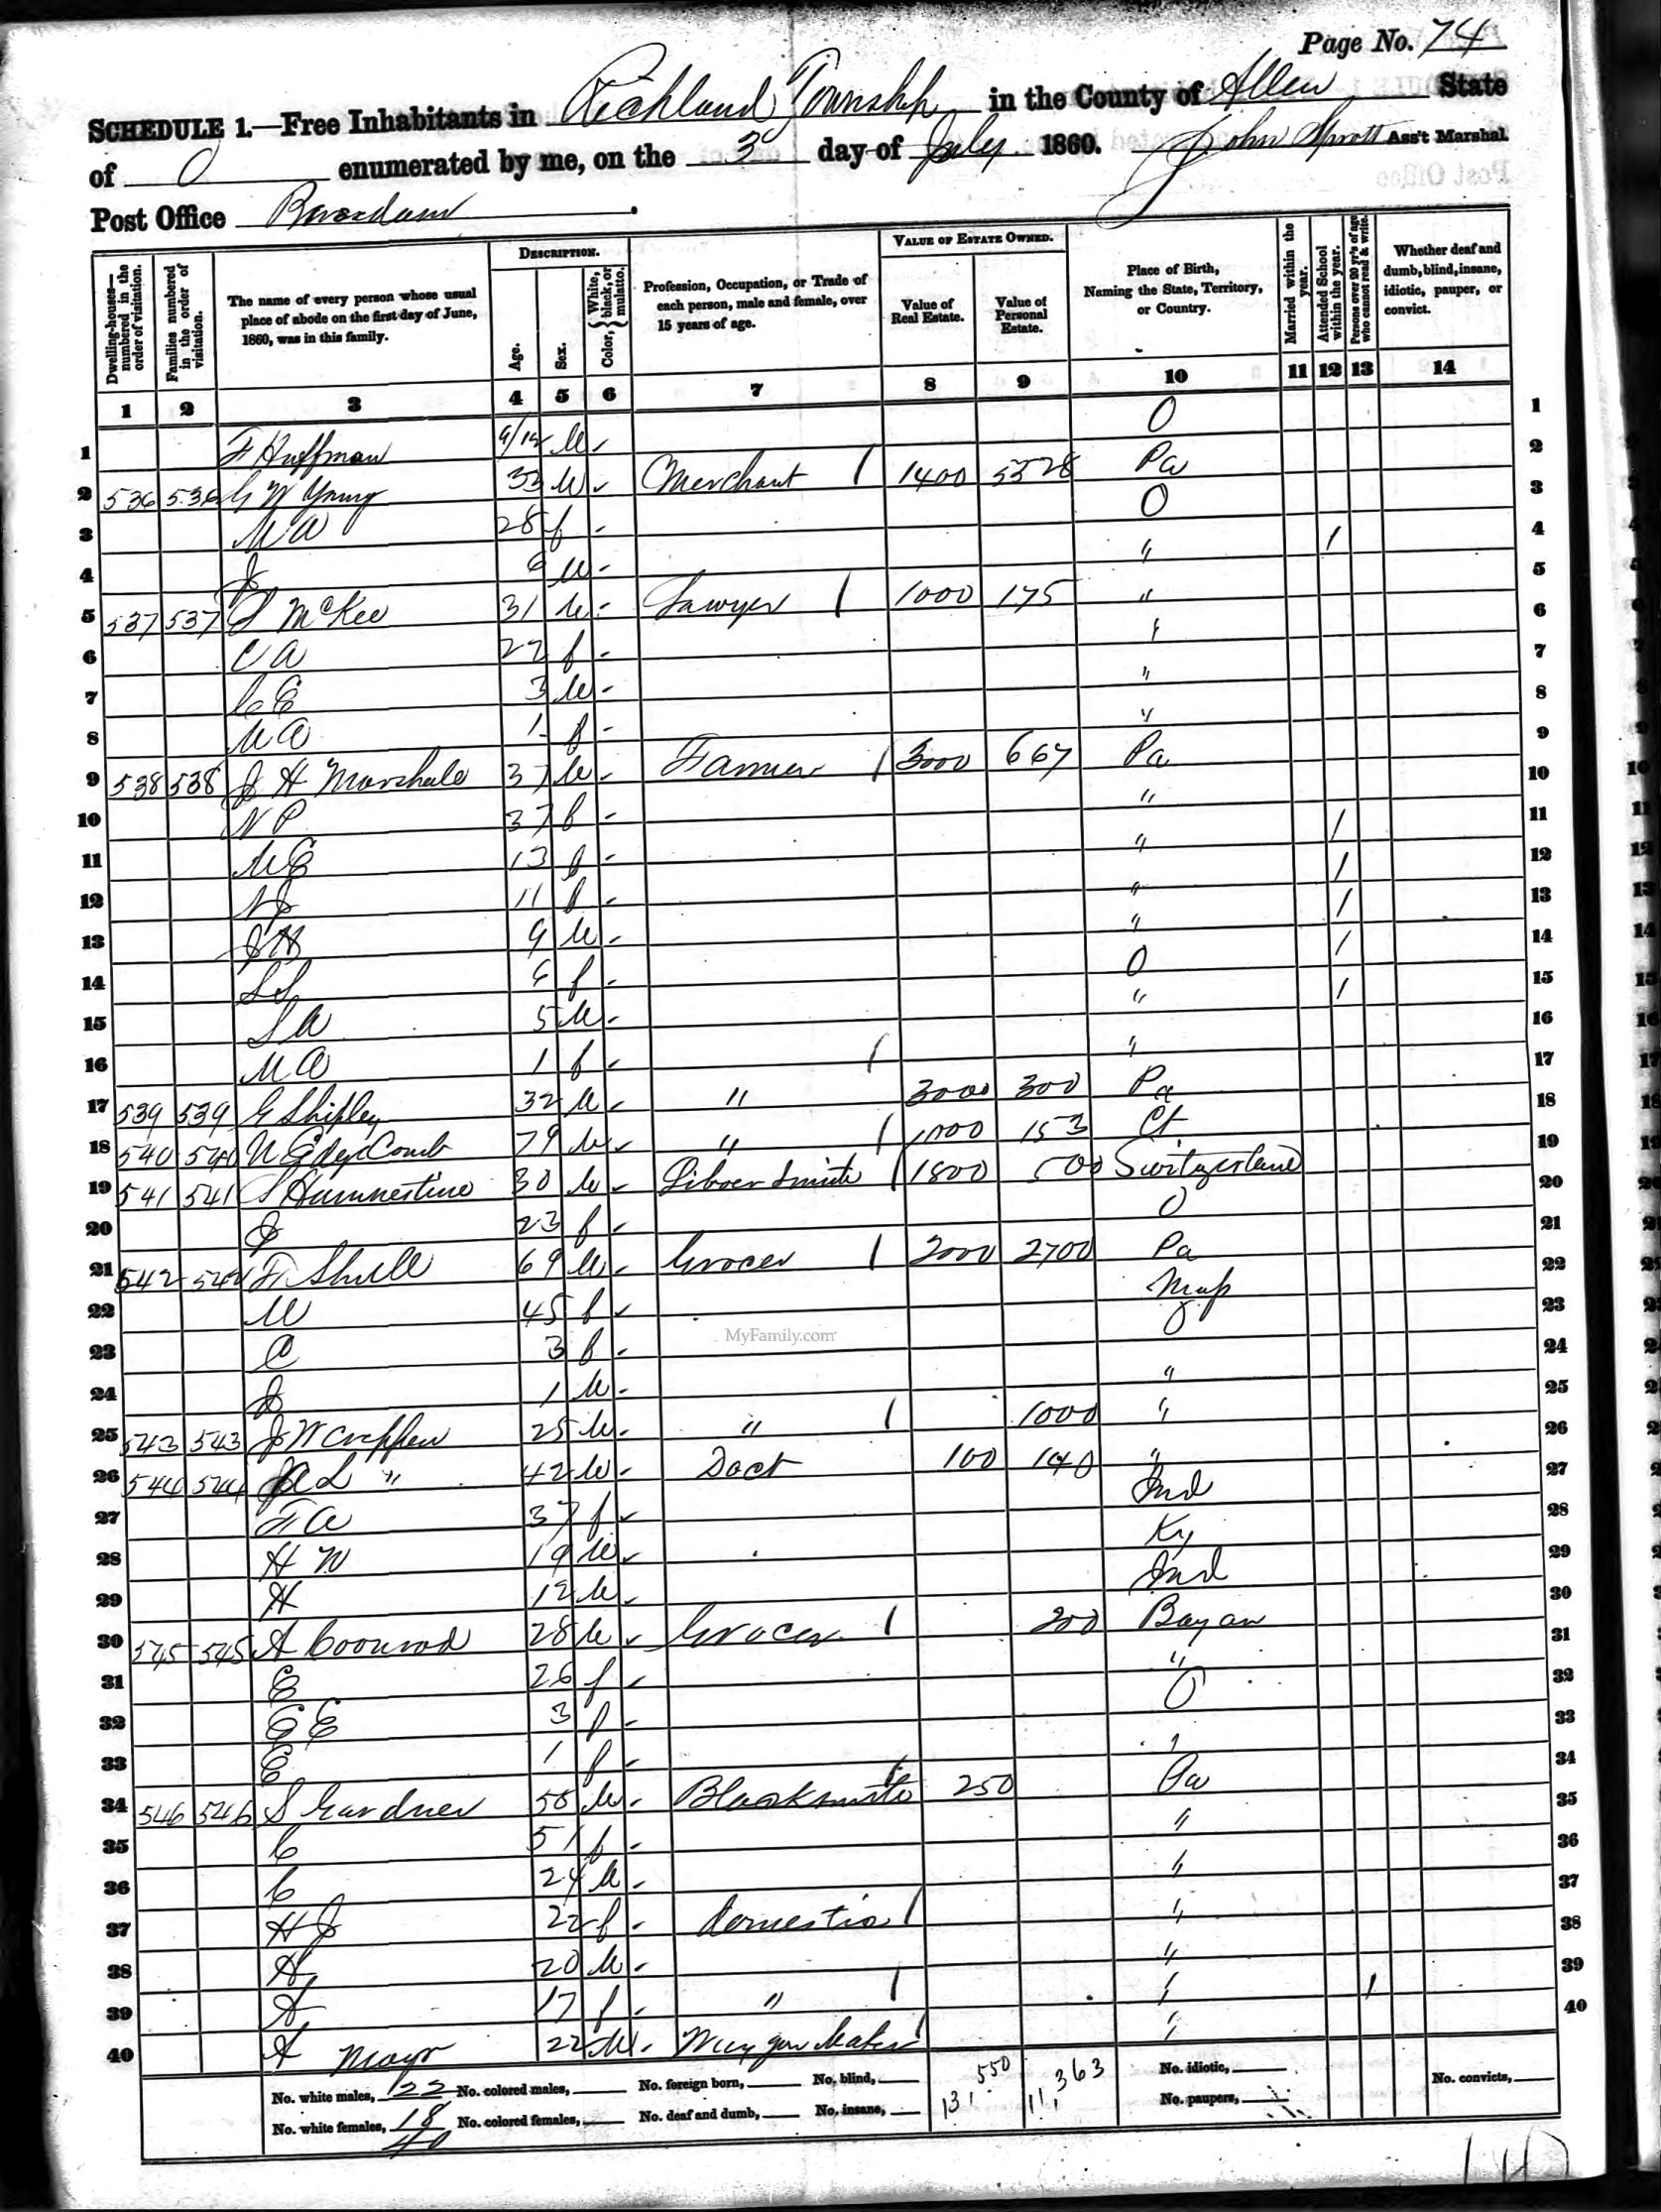 Page No. 74
SCHEDULE 1.—Free Inhabitants in Richland Township in the County of Allen State
of O enumerated by me, on the 3 day of July 1860. John Sprott Ass't Marshal.
Post Office
DESCRIPTION. VALUE OF ESTATE OWNED.
Dwelling-houses—numbered in the order of visitation. Families numbered in the order of visitation. The name of every person whose usual place of abode on the first day of June, 1860, was in this family. Age. Sex. Color, { White, black, or mulatto. Profession, Occupation, or Trade of each person, male and female, over 15 years of age. Value of Real Estate. Value of Personal Estate. Place of Birth, Naming the State, Territory, or Country. Married within the year. Attended School within the year. Persons over 20 yr's of age who cannot read & write. Whether deaf and dumb, blind, insane, idiotic, pauper, or convict.
1 2 3 4 5 6 7 8 9 10 11 12 13 14
1 F Huffman 9/12 M O 1
2 536 536 G W Young 33 M Merchant 1 1400 5528 Pa 2
3 M A 28 f O 3
4 J 6 M " 1 4
5 537 537 S McKee 31 M Lawyer 1 1000 175 " 5
6 C A 22 f " 6
7 C E 3 M " 7
8 M A 1 f " 8
9 538 538 J H Marshale 37 M Farmer 1 3000 667 Pa 9
10 N P 37 f " 10
11 M E 13 f " 1 11
12 N J 11 f " 1 12
13 J H 9 M " 1 13
14 L S 6 f O 1 14
15 S A 5 M " 1 15
16 M A 1 f " 16
17 539 539 G Shipley 32 M " 1 3000 300 Pa 17
18 540 540 N EdgeComb 79 M " 1 1000 153 Ct 18
19 541 541 S 30 M Silver Smith 1 1800 500 Switzerland 19
20 J 23 f O 20
21 542 542 F Shull 69 M Grocer 1 2000 2700 Pa 21
22 M 45 f 22
23 C 3 f O 23
24 J 1 M " 24
25 543 543 J W Crippen 25 M " 1 1000 " 25
26 544 544 L " 42 M Doct 100 140 " 26
27 F A 37 f Ind 27
28 H W 19 M Ky 28
29 H 12 M Ind 29
30 545 545 A Coonrod 28 M Grocer 1 200 Bayan 30
31 E 26 f " 31
32 E E 3 f O 32
33 E 1 f " 33
34 546 546 S Gardner 50 M Blacksmith 1 250 Pa 34
35 C 51 f " 35
36 C 24 M " 36
37 H J 22 f domestic 1 " 37
38 A 20 M " 38
39 A 17 f " 1 " 1 39
40 A Mayr 22 M " 40
MyFamily.com
No. white males, 22 No. colored males, No. foreign born, No. blind, 550 363 No. idiotic, No. convicts,
No. white females, 18 No. colored females, No. deaf and dumb, No. insane, 131 111 No. paupers,
40